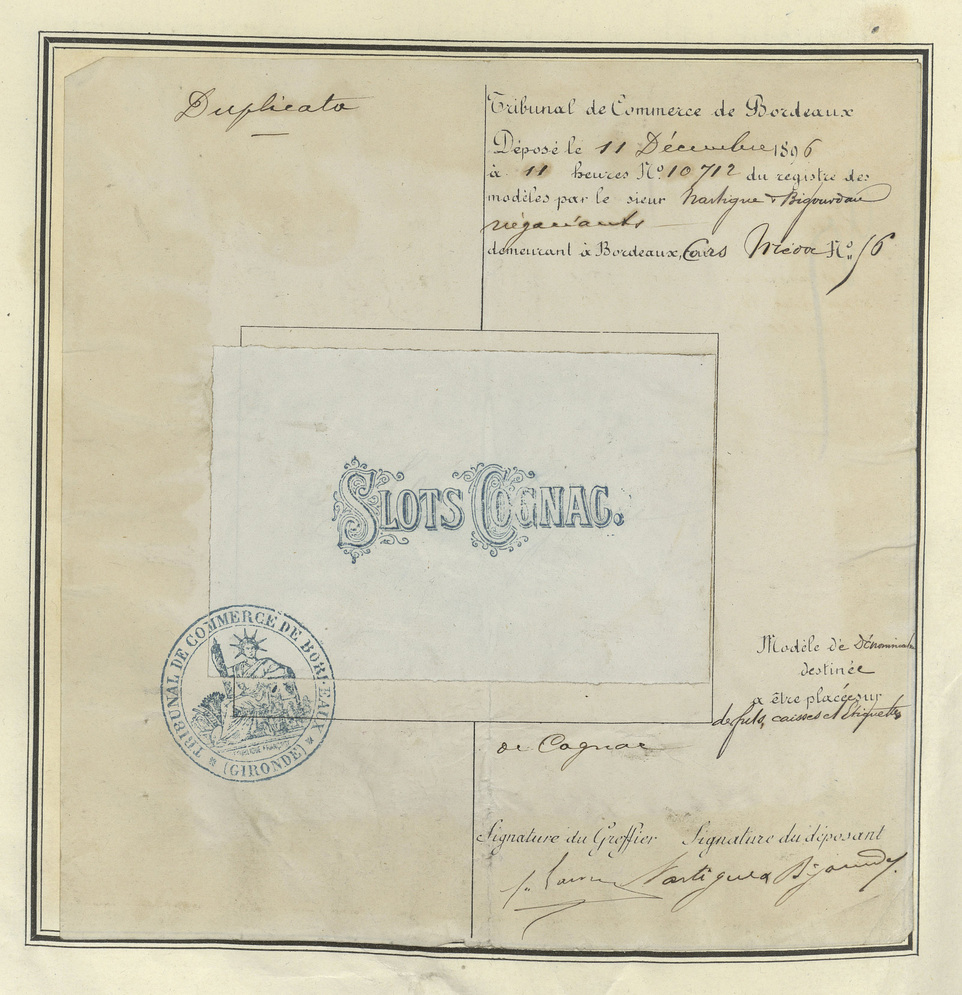 Duplicata
Tribunal de Commerce de Bordeaux
Déposé le 11 Décembre 1896
à 11 heures No. 10 712 du registre des
modèles par le sieur Nartigue & Bigourdan
négociants
demeurant à Bordeaux, Cours Médoc No. 56
SLOTS COGNAC.
TRIBUNAL DE COMMERCE DE BORDEAUX
(GIRONDE)
Modèle de Dénomination
destinée
a être placée sur
de fûts, caisses et étiquettes
de Cognac
Signature du Greffier Signature du déposant
Nartigue & Bigourdan